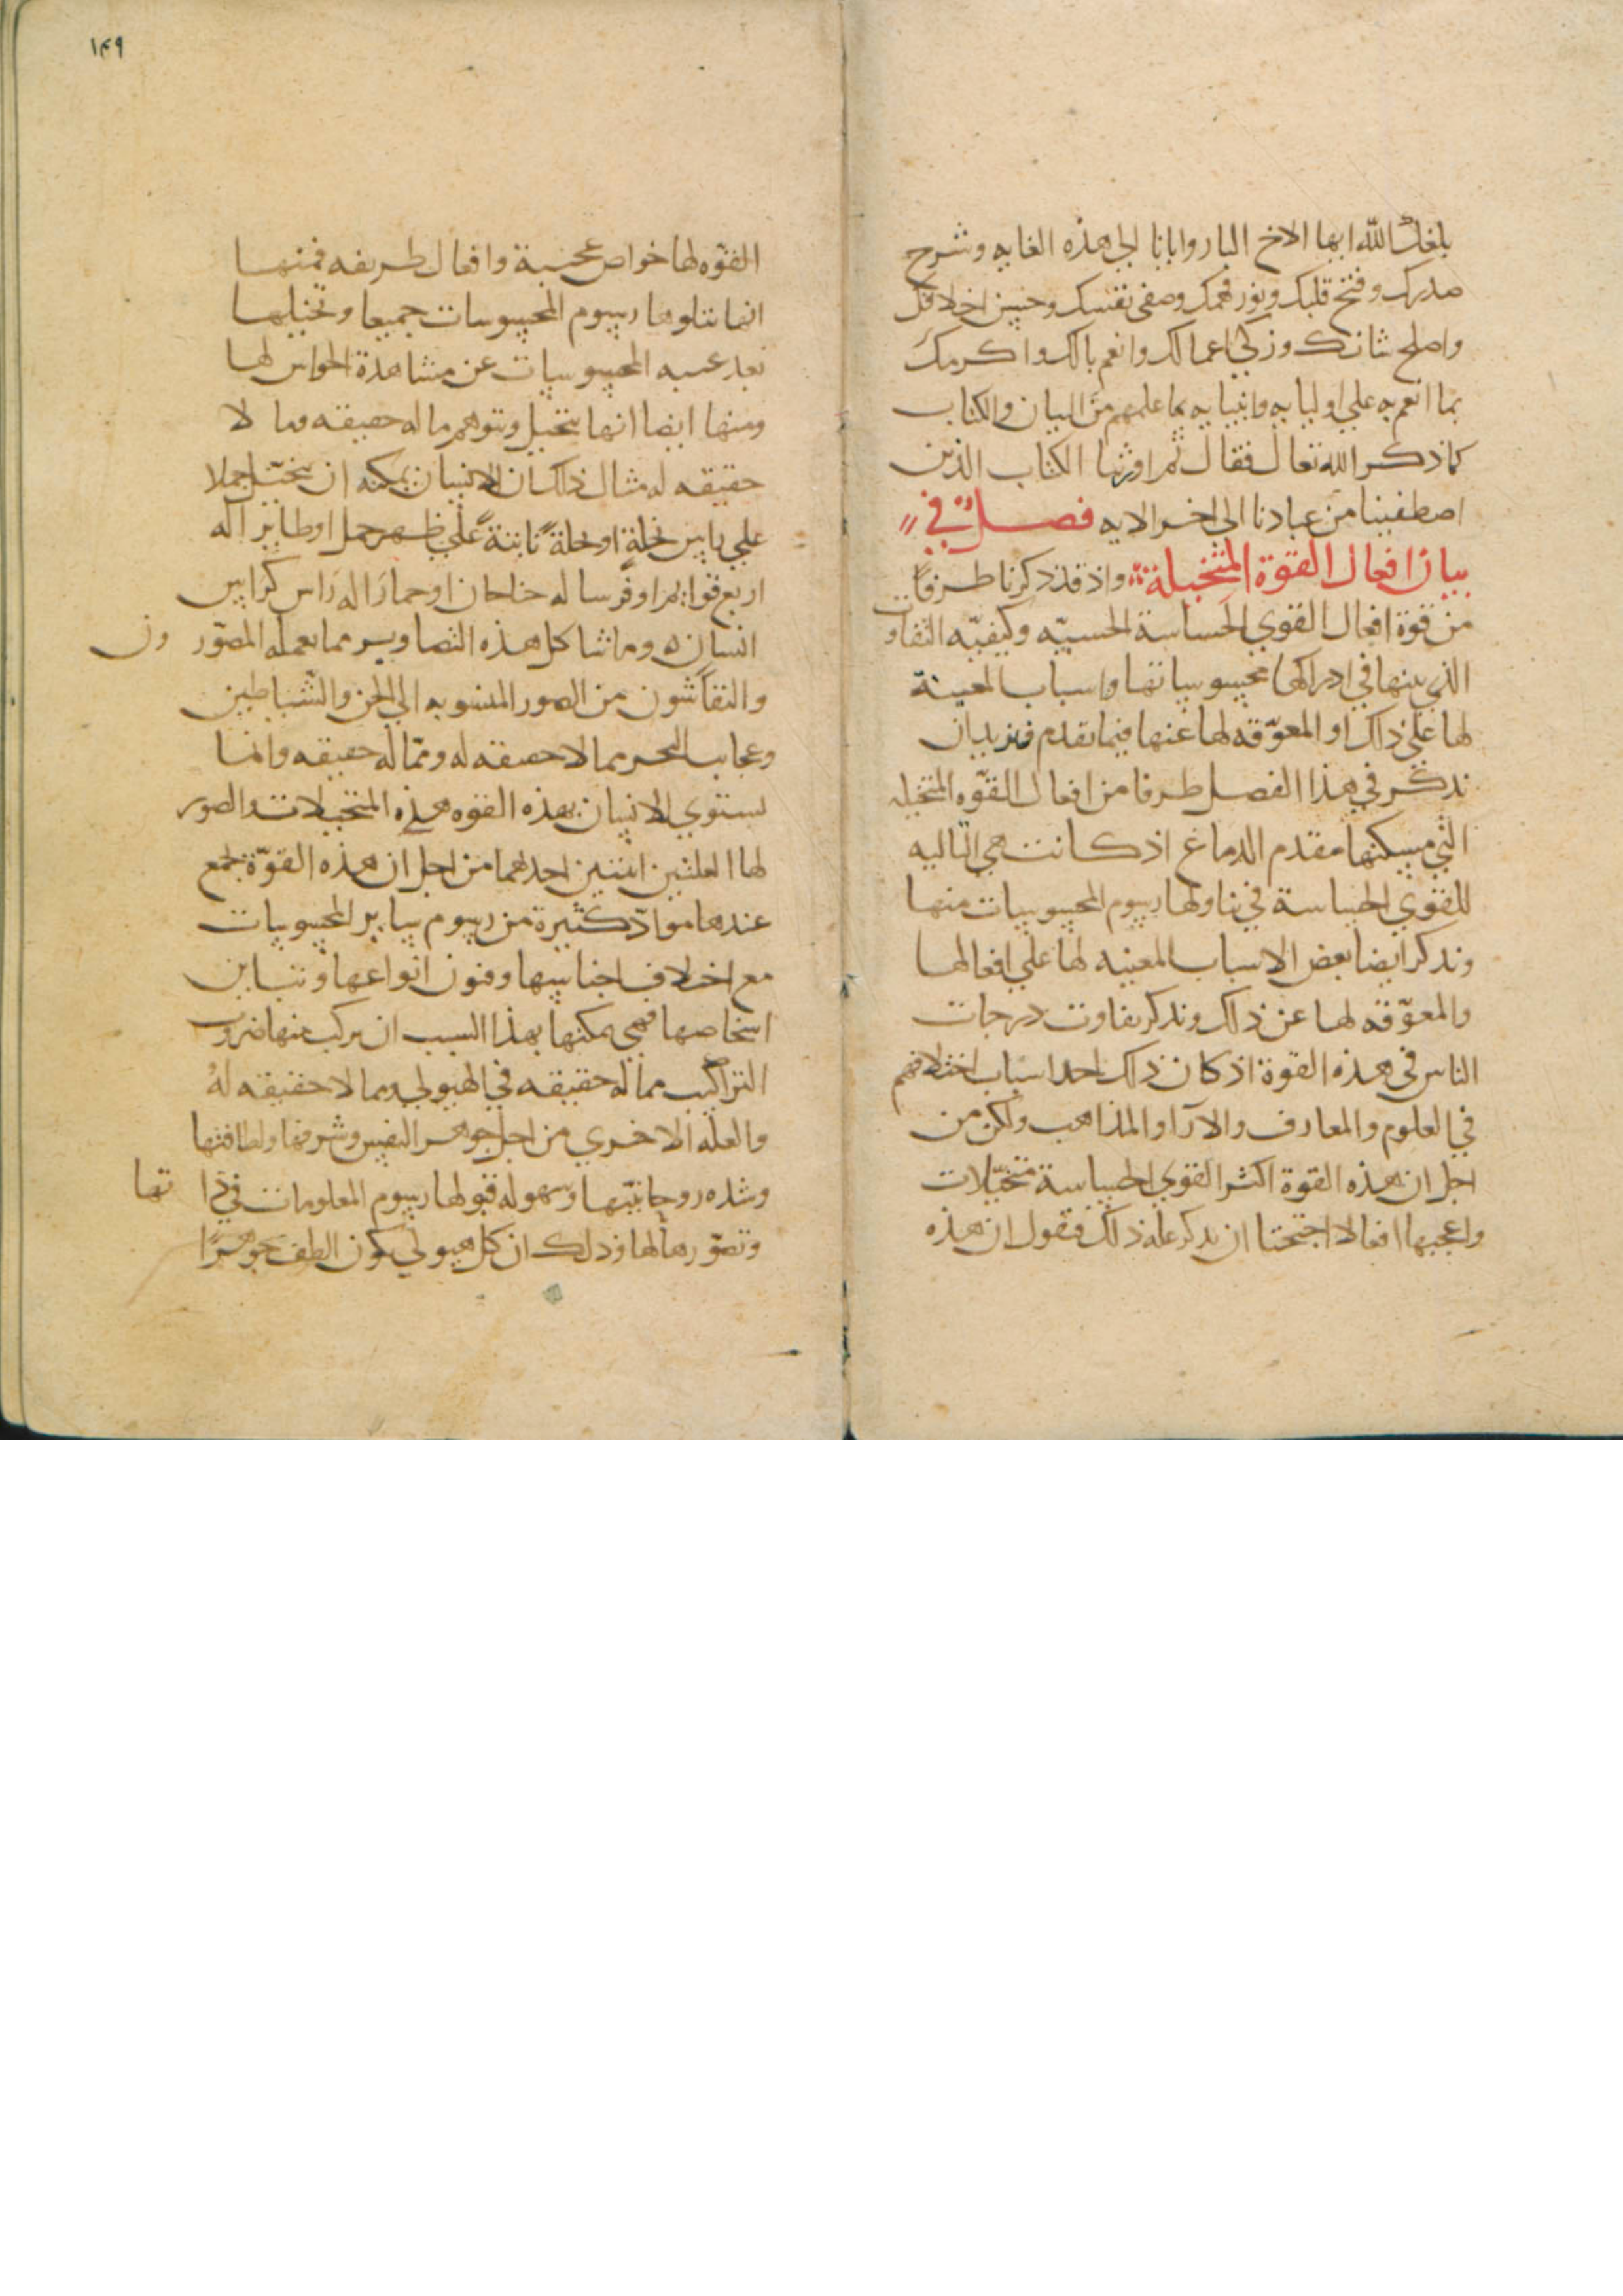 بلغك الله ايها الاخ البار وايانا الى هذه الغايه وشرح
صدرك وفتح قلبك ونور فهمك وصفى نفسك وحسن اخلاقك
واصلح شانك وزكى اعمالك وانعم بالك واكرمك
بما انعم به علي اوليايه وانبيايه بما علمهم من البيان والكتاب
كما ذكر الله تعالى فقال ثم اورثنا الكتاب الذين
اصطفينا من عبادنا الى اخر الايه فصل في
بيان افعال القوة المتخيلة واذ قد ذكرنا طرفا
من قوة افعال القوي الحساسة الحسيّه وكيفيّه التفاوت
الذي بينها في ادراكها محسوساتها واسباب المعينة
لها علي ذلك او المعوّقه لها عنها فيما تقدم فنريد ان
نذكر في هذا الفصل طرفا من افعال القوّه المتخيله
التي مسكنها مقدم الدماغ اذ كانت هي التاليه
للقوي الحساسة في تناولها رسوم المحسوسات منها
ونذكر ايضا بعض الاسباب المعينه لها علي افعالها
والمعوّقه لها عن ذلك ونذكر تفاوت درجات
الناس في هذه القوة اذ كان ذلك احد اسباب اختلافهم
في العلوم والمعارف والآرا والمذاهب ولكن من
اجل ان هذه القوة اكثر القوي الحساسة متخيّلات
واعجبها افعالا احتجنا ان نذكر علة ذلك فنقول ان هذه
١٤٩
القوّه لها خواص عجيبة وافعال طريفه فمنها
انها تناولها رسوم المحسوسات جميعا وتخيلها
بعد غيبه المحسوسات عن مشاهدة الحواس لها
ومنها ايضا انها تتخيل وتتوهم ما له حقيقه وما لا
حقيقه له مثال ذلك ان الانسان يمكنه ان يتخيّل جملا
علي راس نخلةٍ او نخلةً نابتةً علي ظهر جمل او طاير اله
اربع قوايم او فرسا له جناحان او حمارا له راس كراس
انسان وما شاكل هذه التصاوير مما يعمله المصوّر ون
والنقاشون من الصور المنسوبه الي الجن والشّياطين
وعجايب البحر مما لا حقيقه له ومما له حقيقه وانما
يستوي الانسان بهذه القوه هذه المتخيلات والصور
لها العلتين اثنتين احداهما من اجل ان هذه القوّة تجمع
عندها موادّ كثيرة من رسوم ساير المحسوسات
مع اختلاف اجناسها وفنون انواعها وتباين
اشخاصها فهي يمكنها بهذا السبب ان يركب منها ضروب
التراكيب مما له حقيقه في الهيولي ومما لا حقيقه له
والعله الاخري من اجل جوهر النفس وشرفها ولطافتها
وشده روحانيّتها وسهوله قبولها رسوم المعلومات في ذا تها
وتصوّرها لها وذلك ان كل هيولي يكون الطف جوهرًا